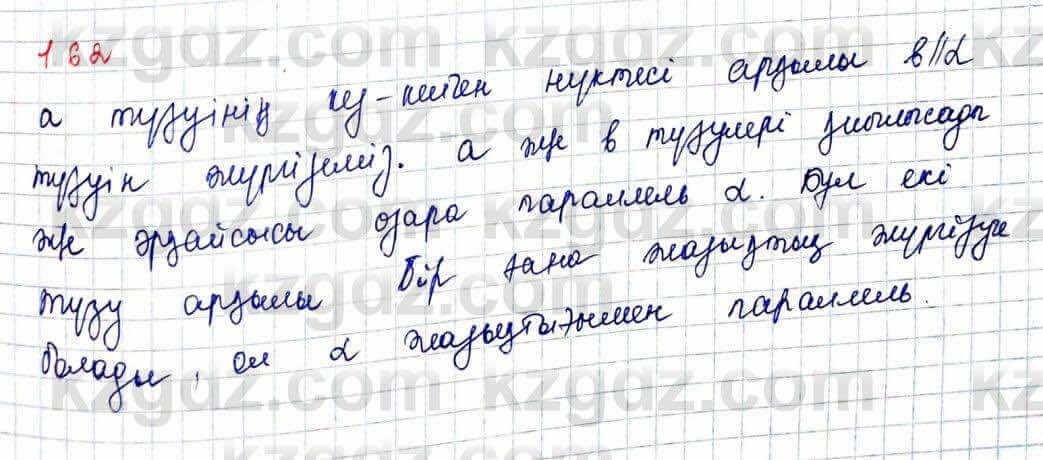 1.62
а түзуінің кез-келген нүктесі арқылы в||α
түзуін жүргіземіз. а және в түзулері қиылысады
және әрқайсысы өзара параллель α. Бұл екі
түзу арқылы бір ғана жазықтық жүргізуге
болады, ол α жазықтығымен параллель.
kzgdz.com